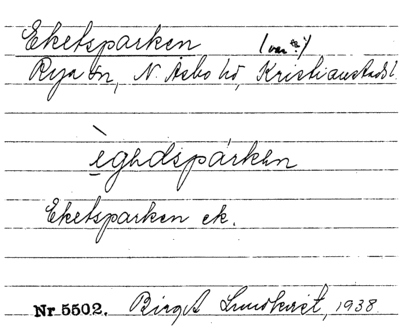 Eketsparken (var?)
Rya sn, N. Åsbo hd, Kristianstads l.
è̱gədspàrkən
Eketsparken ek.
Nr 5502. Birgit Lundkvist, 1938